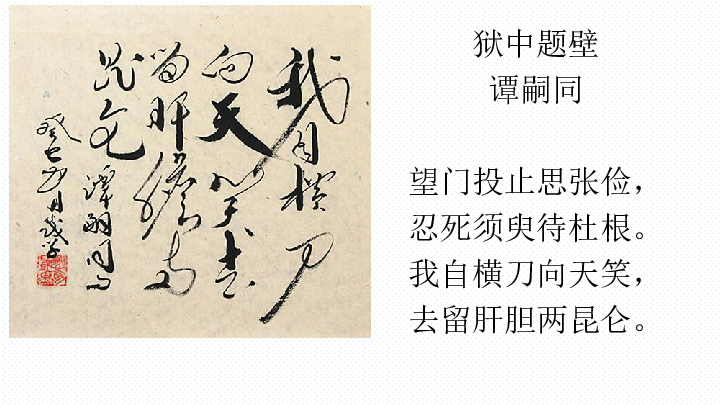 我自横刀
向天笑去
留肝膽两
昆仑
譚嗣同句
癸巳
狱中题壁
谭嗣同
望门投止思张俭，
忍死须臾待杜根。
我自横刀向天笑，
去留肝胆两昆仑。